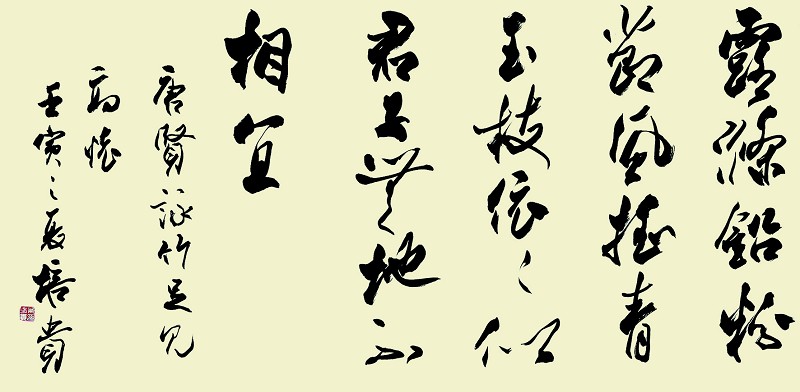 露滌鉛粉
節風搖青
玉枝依々似
君子無地不
相宜
唐賢詠竹足見
高懷
壬寅之夏培貴